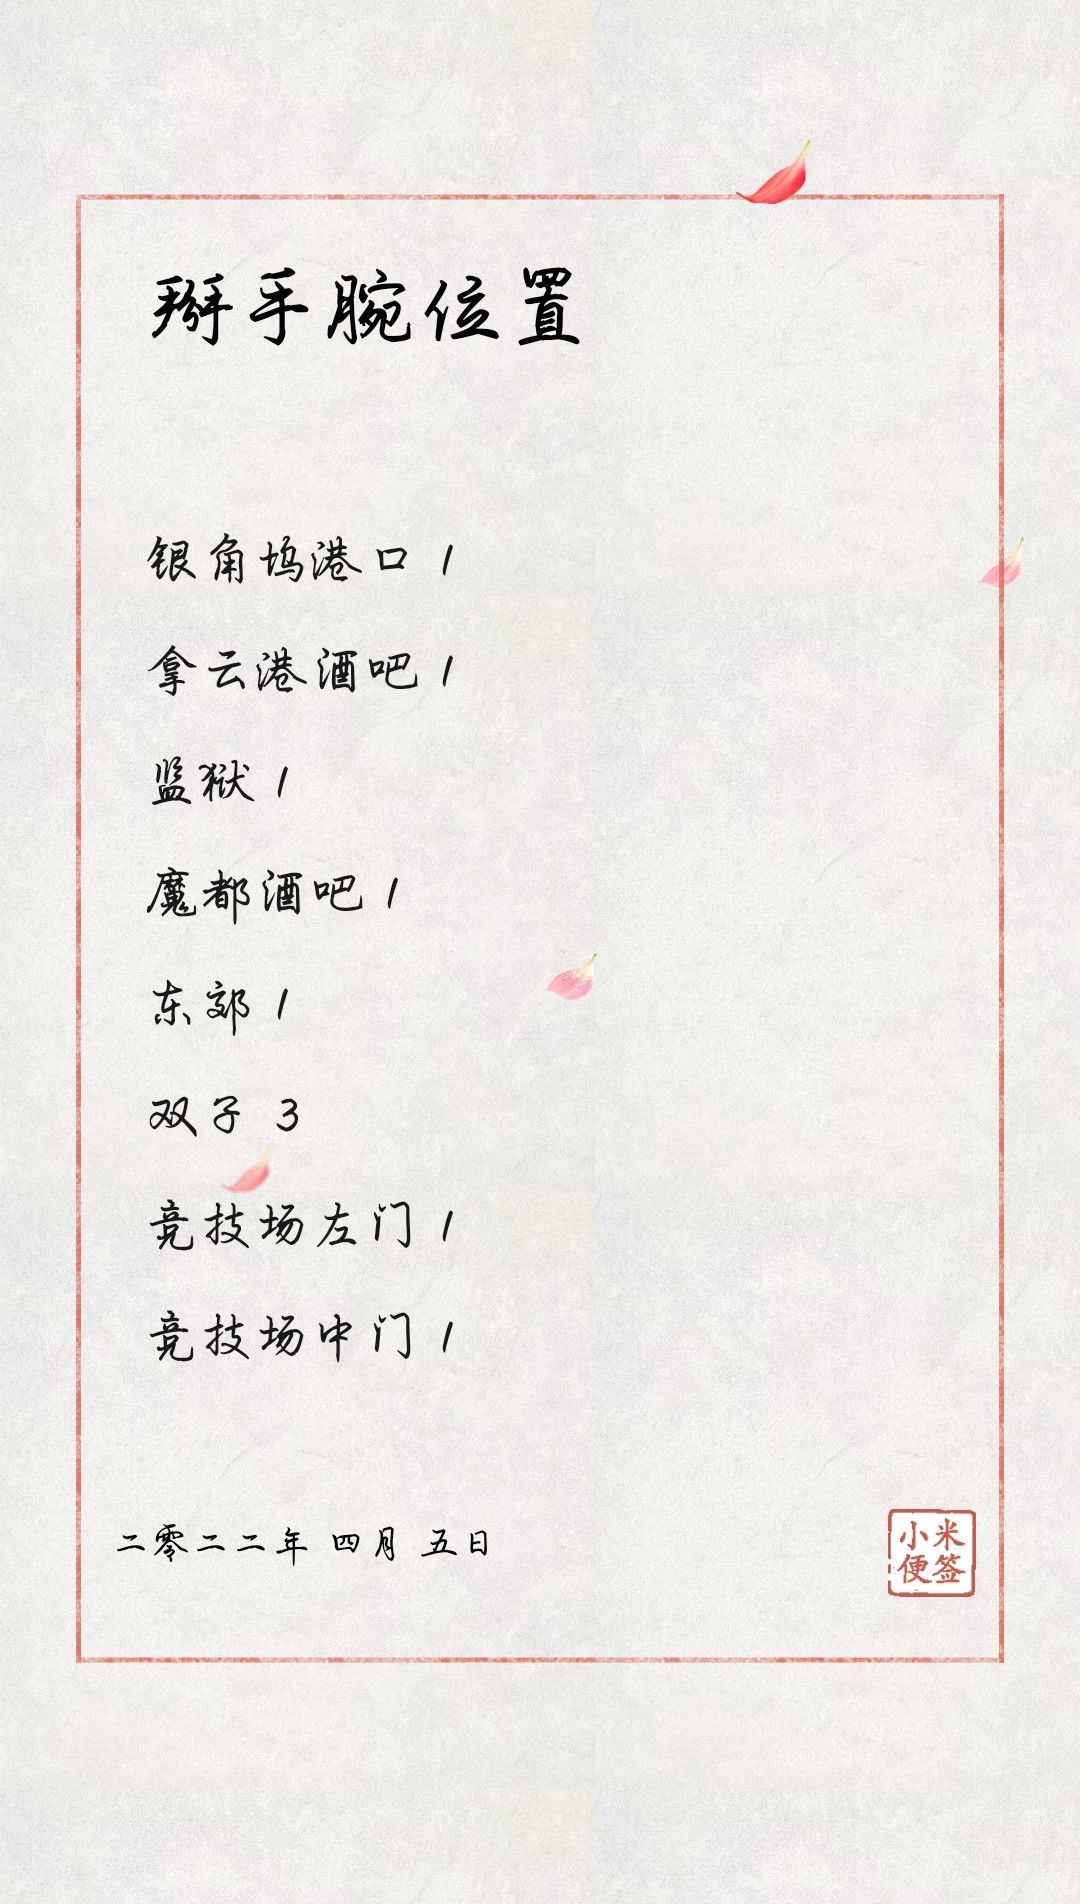 掰手腕位置
银角坞港口 1
拿云港酒吧 1
监狱 1
魔都酒吧 1
东郊 1
双子 3
竞技场左门 1
竞技场中门 1
二零二二年 四月 五日
小米
便签